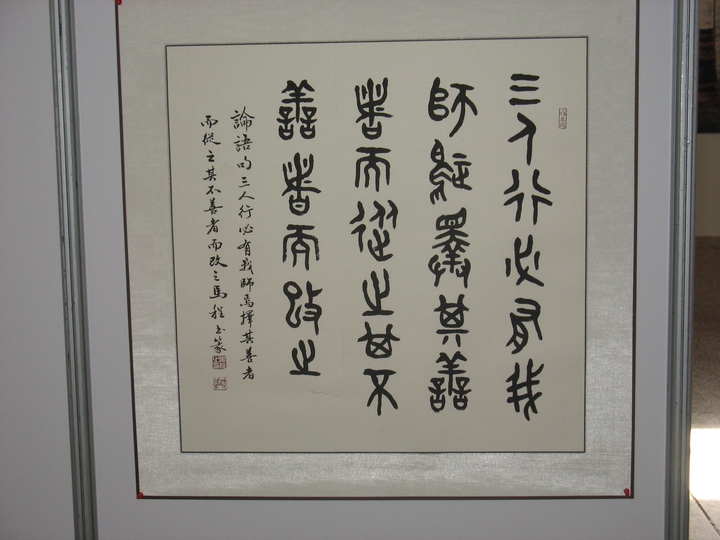 三人行必有我
師焉擇其善
者而從之其不
善者而改之
論語句三人行必有我師焉擇其善者
而從之其不善者而改之馬程書篆